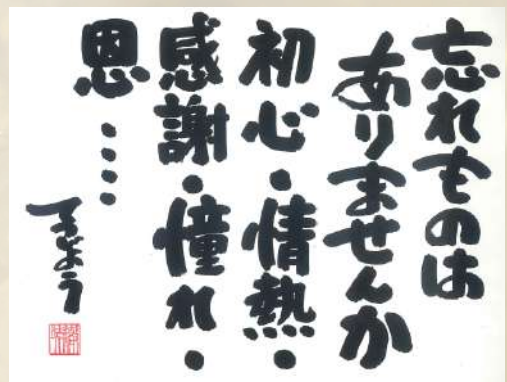 忘れものは
ありませんか
初心・情熱・
感謝・憧れ・
恩・・・・
きどう